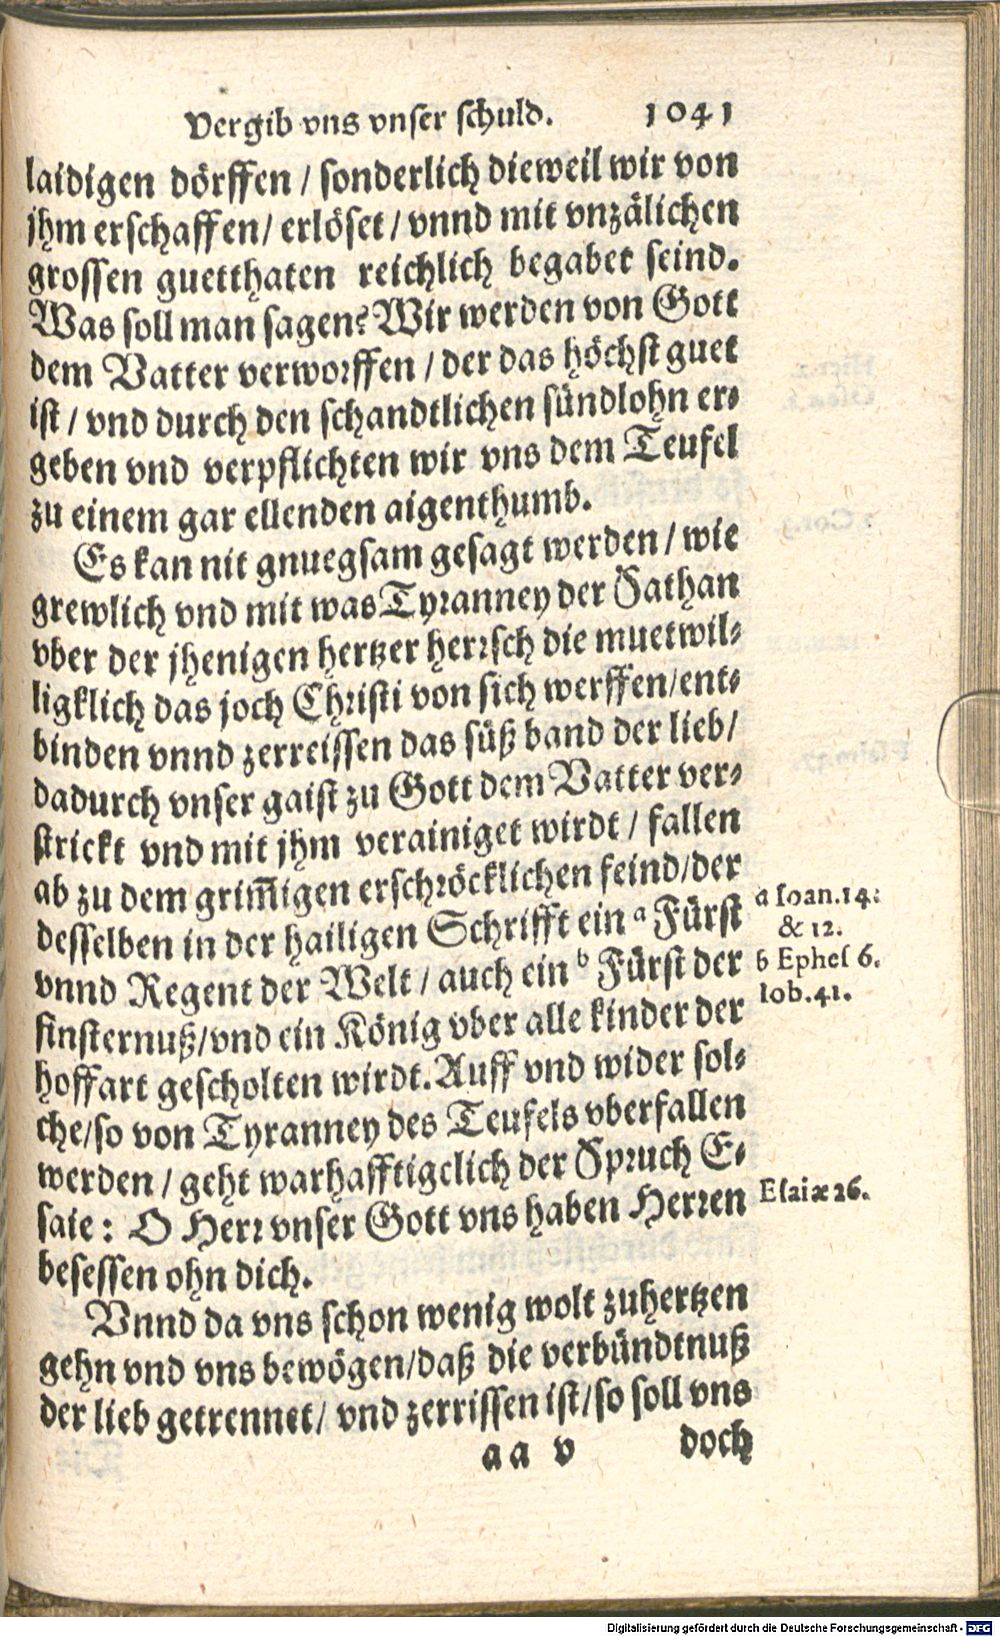 Vergib vns vnser schuld. 1041
laidigen dörffen / sonderlich dieweil wir von
jhm erschaffen / erlöset / vnnd mit vnzälichen
grossen guetthaten reichlich begabet seind.
Was soll man sagen? Wir werden von Gott
dem Vatter verworffen / der das höchst guet
ist / vnd durch den schandtlichen sündlohn er⸗
geben vnd verpflichten wir vns dem Teufel
zu einem gar ellenden aigenthumb.
Es kan nit gnuegsam gesagt werden / wie
grewlich vnd mit was Tyranney der Sathan
vber der jhenigen hertzer herrsch die muetwil⸗
ligklich das joch Christi von sich werffen / ent⸗
binden vnnd zerreissen das süß band der lieb /
dadurch vnser gaist zu Gott dem Vatter ver⸗
strickt vnd mit jhm verainiget wirdt / fallen
ab zu dem grim̃igen erschröcklichen feind / der
desselben in der hailigen Schrifft ein ᵃ Fürst
vnnd Regent der Welt / auch ein ᵇ Fürst der
finsternuß / vnd ein König vber alle kinder der
hoffart gescholten wirdt. Auff vnd wider sol⸗
che / so von Tyranney des Teufels vberfallen
werden / geht warhafftigclich der Spruch E⸗
saie: O Herr vnser Gott vns haben Herren
besessen ohn dich.
Vnnd da vns schon wenig wolt zuhertzen
gehn vnd vns bewögen / daß die verbündtnuß
der lieb getrennet / vnd zerrissen ist / so soll vns
aa v doch
a Ioan.14:
& 12.
b Ephes 6.
Iob.41.
Esaiæ 26.
Digitalisierung gefördert durch die Deutsche Forschungsgemeinschaft - DFG